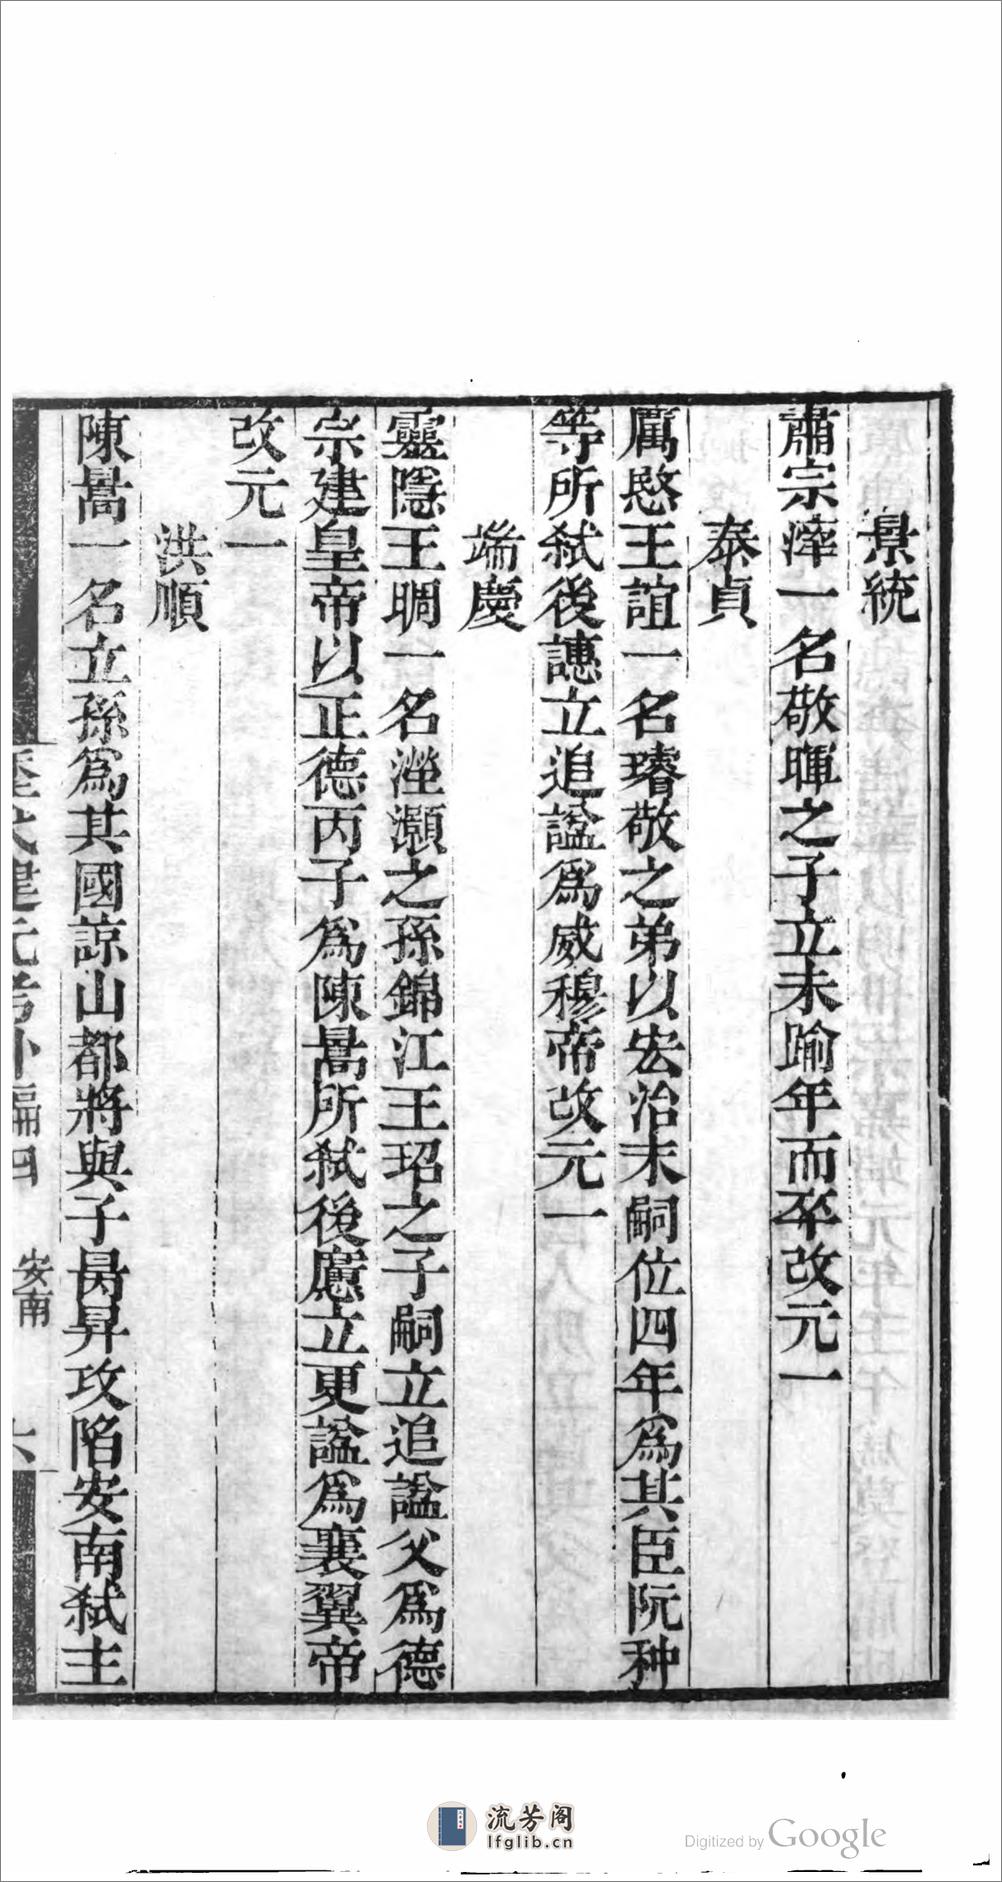 景統
肅宗㵮一名敬暉之子立未踰年而卒改元一
泰貞
厲愍王誼一名璿敬之弟以宏治末嗣位四年為其臣阮种
等所弑後譓立追諡為威穆帝改元一
端慶
靈隱王晭一名瀅灝之孫錦江王玿之子嗣立追諡父為德
宗建皇帝以正德丙子為陳暠所弑後廌立更諡為襄翼帝
改元一
洪順
陳暠一名立孫為其國諒山都將與子昺昇攻陷安南弑主
歷代建元考外編四 安南 六
流芳阁
lfglib.cn
Digitized by Google